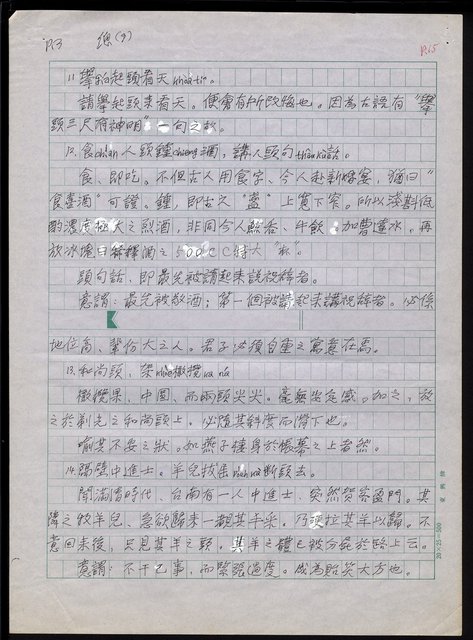 P.3
(9)
P.15
11. 攑頭起頭看天khòaⁿ-tiⁿ。
請攑起頭來看天。便會有所改悔也。因為古語有“攑
頭三尺有神明”一句之故。
12. 食chia̍h人頭鍾chiong酒，講人頭句thâu-kù話。
食、即吃。不但古人用食字、今人赴新婚宴，猶曰“
食喜酒”可證。鍾，即古文“盅”上寬下窄。所以淺斟低
酌濃度極大之烈酒，非同今人酣呑、牛飲
放冰塊日稀釋酒之500CC特大“杯”。
頭句話、即最先被請起來說祝辭者。
意謂：最先被敬酒；第一個被請起來講祝辭者。必係
地位高、輩份大之人。君子必須自重之寓意在焉。
13. 和尚頭、架橄欖ka-ná
橄欖果、中圓、而兩頭尖尖。毫無坐定感。加之、放
之於剃光之和尚頭上。必隨其斜度而滑下也。
喻其不妥之狀。如燕子棲身於帳幕之上者然。
14. 隔壁中進士。羊兒拔斷頷去。
聞滿清時代、台南有一人中進士、突然賀客盈門。其
隣之牧羊兒、急欲歸來一觀其手采。乃拉其羊以歸。不
意回來後，只見其羊之頸。其羊之體已被分屍於路上云。
意謂：不干己事，而緊張過度。成為貽笑大方也。
20×25=500